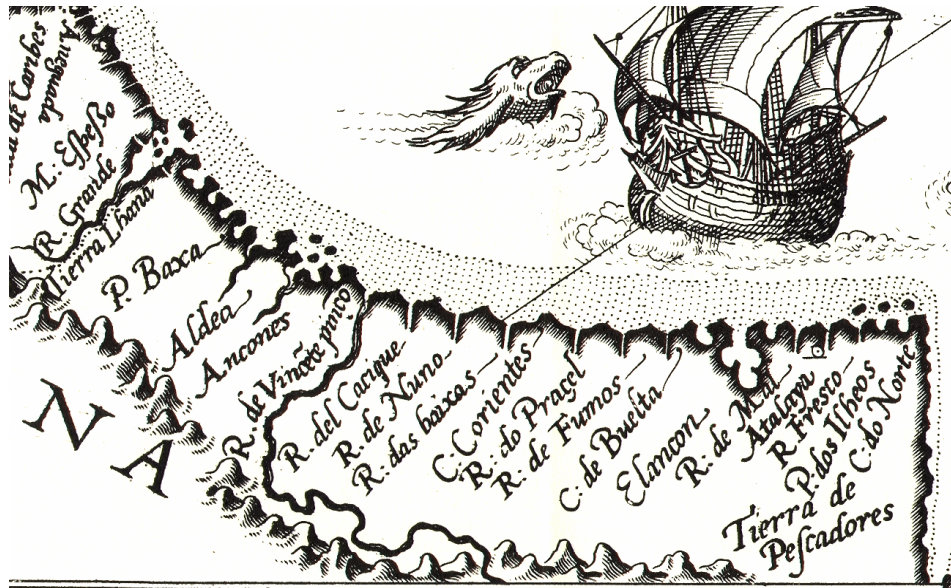 de Caribes
Anegada
M: Eſpeſſo
R. Grande
Tierra Lhana
P. Baxa
Aldea
Ancones
R. de Vincẽte pniço
R. del Cacique
R. de Nuno
R: das baixas
C: Corientes
R: do Praçel
R: de Fumos
C: de Buelta
Elincon
R: de M.al
Atalaya
R Fresco
P: dos Ilheos
C: do Norte
Tierra de
Peſcadores
N A